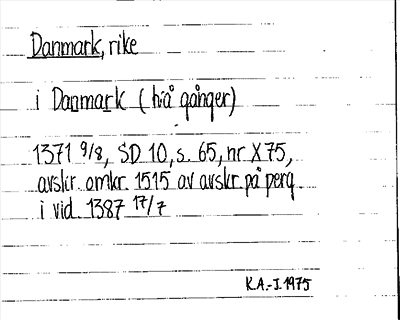 Danmark, rike
i Danmark (två gånger)
1371 9/8, SD 10, s. 65, nr X 75,
avskr. omkr. 1515 av avskr. på perg.
i vid. 1387 17/7
K.A.-I. 1975